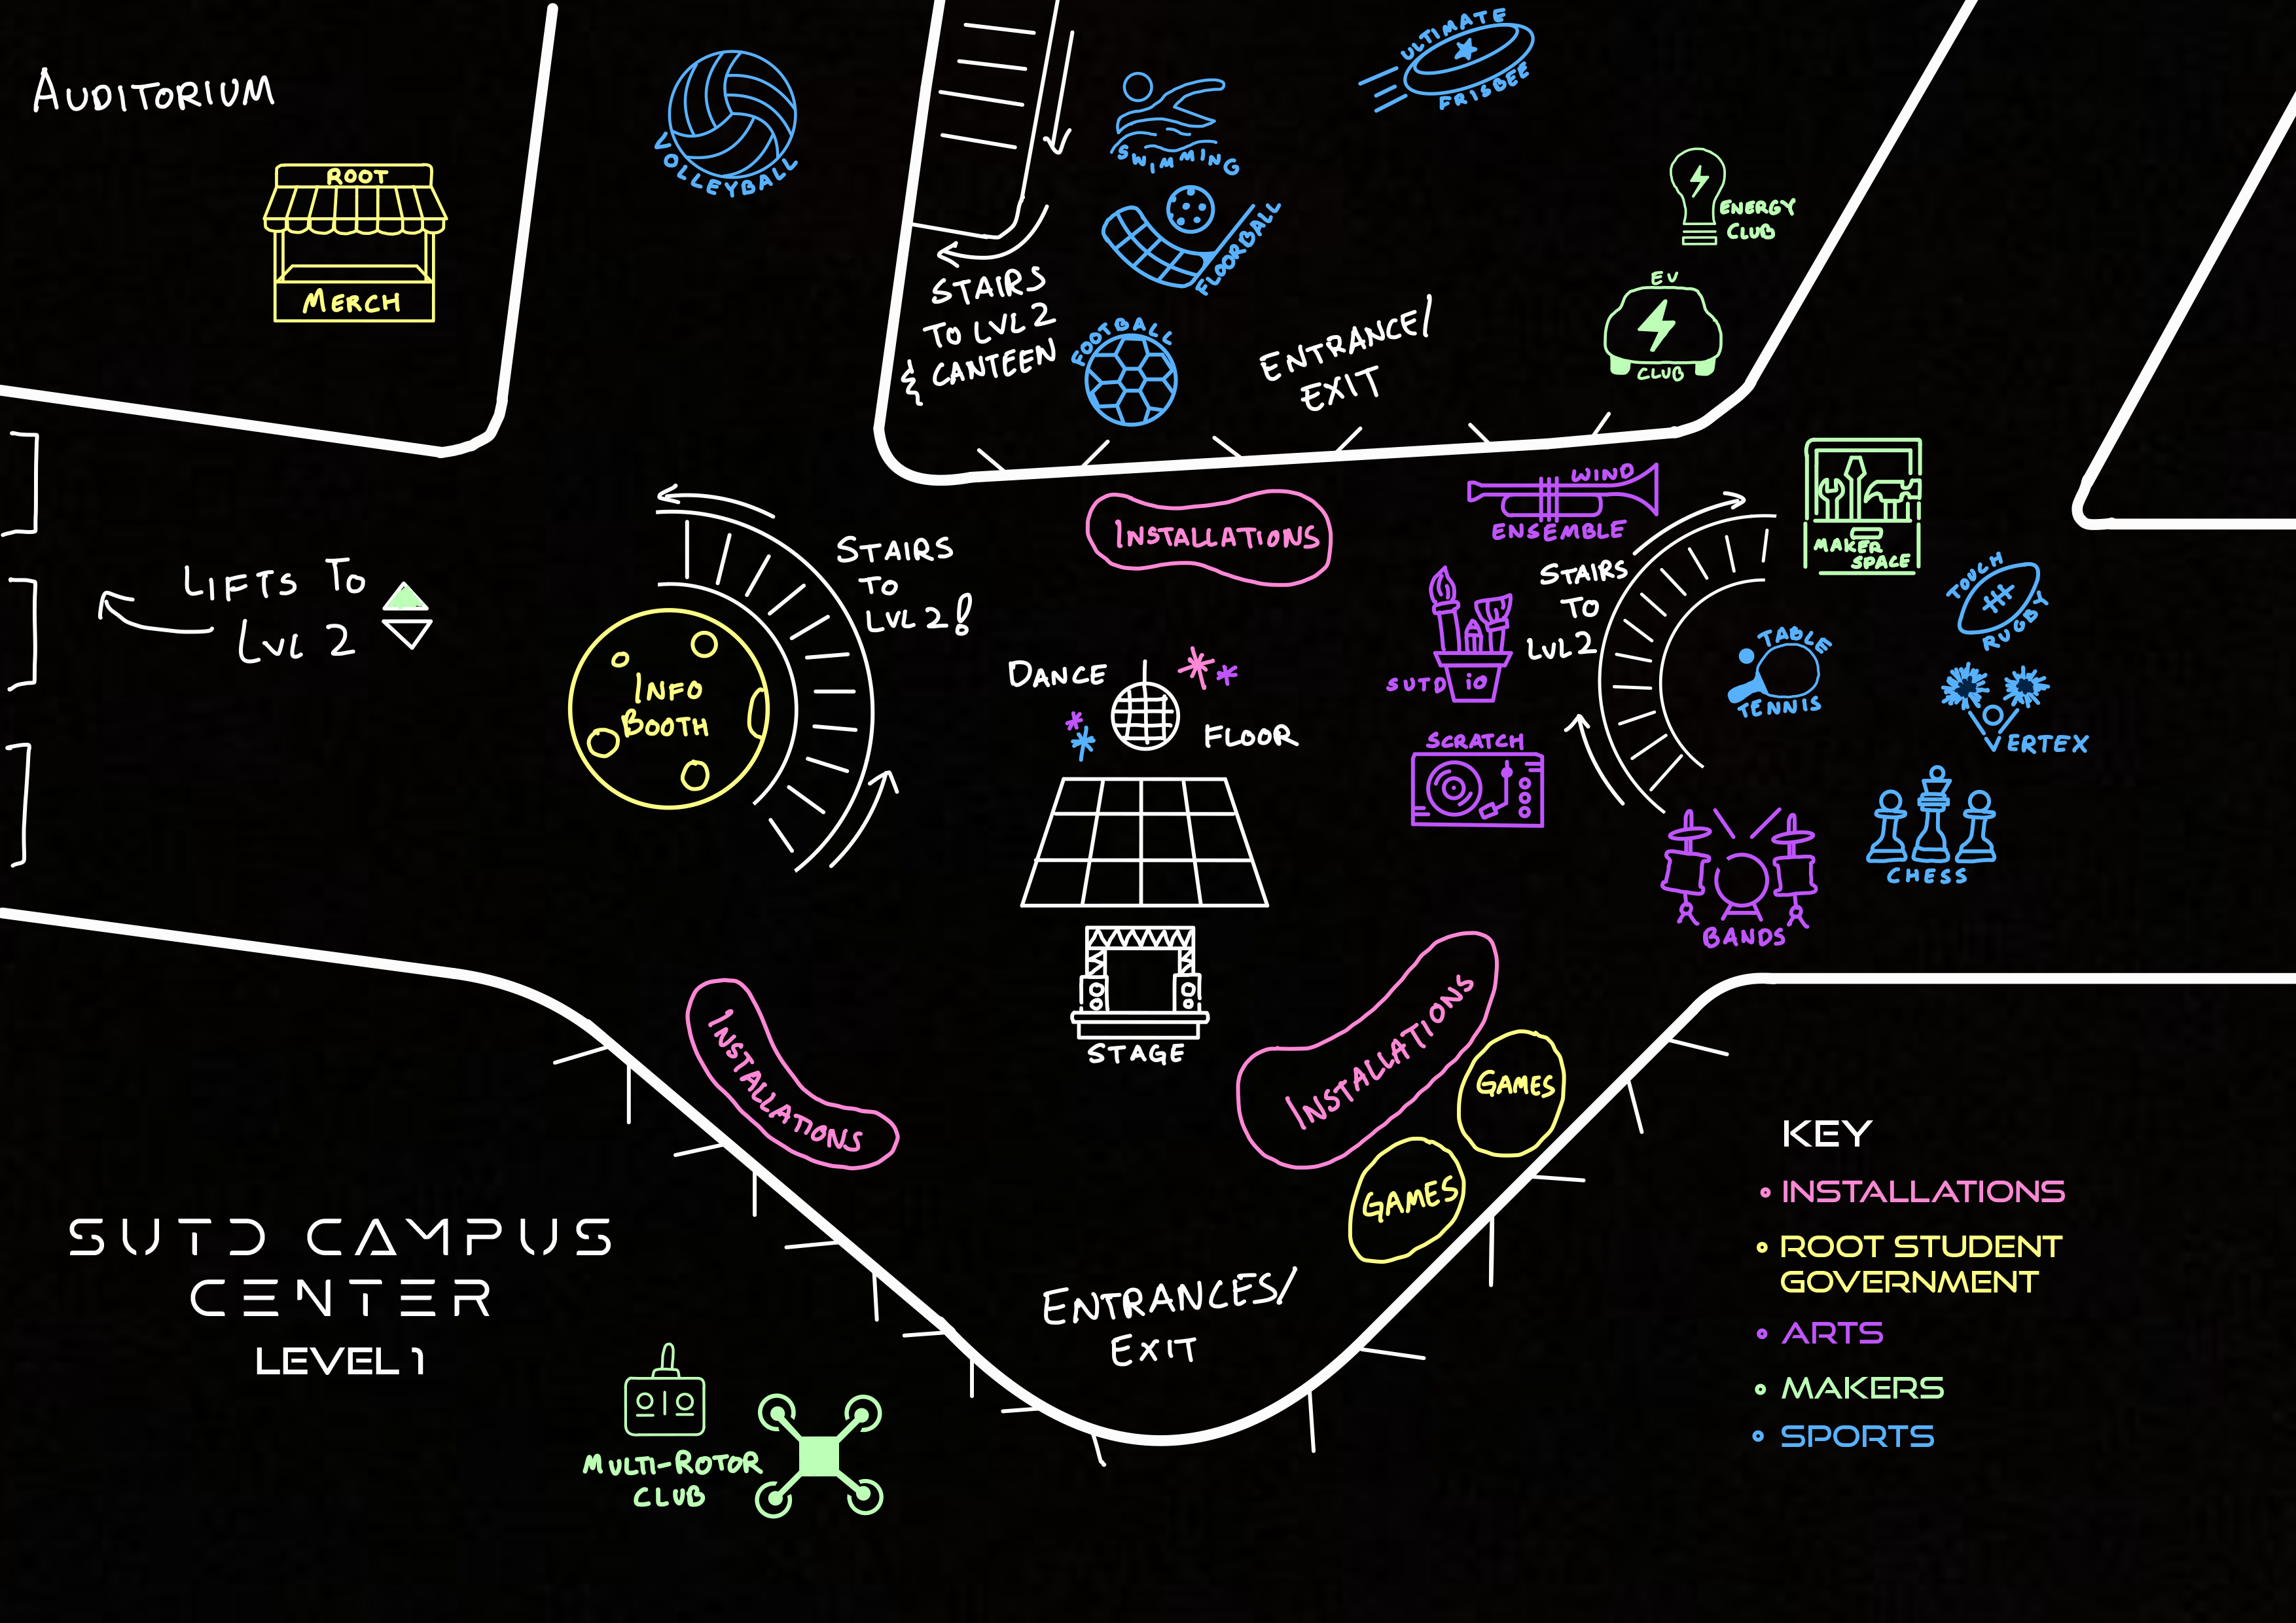 AUDITORIUM
ROOT
MERCH
VOLLEYBALL
STAIRS
TO LVL 2
& CANTEEN
SWIMMING
FLOORBALL
FOOTBALL
ULTIMATE
FRISBEE
ENTRANCE/
EXIT
ENERGY
CLUB
EV
CLUB
LIFTS TO
LVL 2
INFO
BOOTH
STAIRS
TO
LVL 2!
INSTALLATIONS
WIND
ENSEMBLE
SUTD iO
SCRATCH
STAIRS
TO
LVL 2
MAKER
SPACE
TOUCH
RUGBY
TABLE
TENNIS
VERTEX
CHESS
BANDS
DANCE
FLOOR
STAGE
INSTALLATIONS
INSTALLATIONS
GAMES
GAMES
ENTRANCES/
EXIT
SUTD CAMPUS
CENTER
LEVEL 1
MULTI-ROTOR
CLUB
KEY
INSTALLATIONS
ROOT STUDENT
GOVERNMENT
ARTS
MAKERS
SPORTS